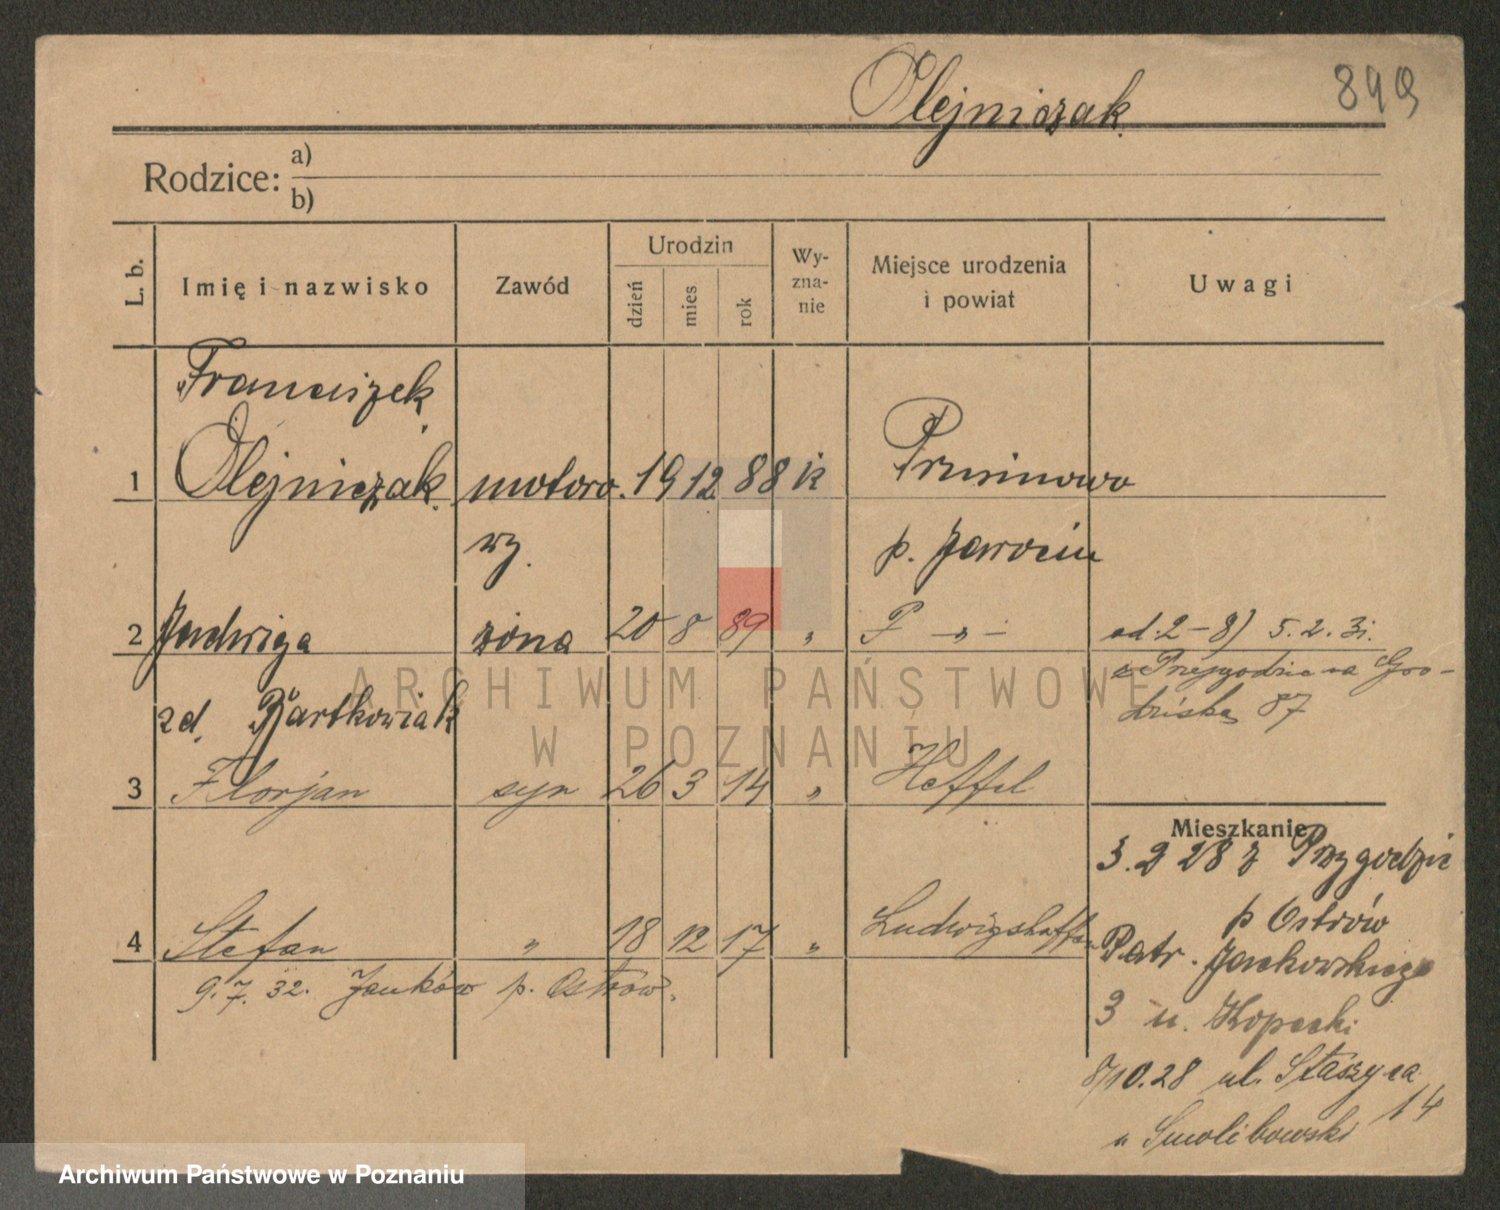 Olejniczak
899
Rodzice:
a)
b)
L. b.
Imię i nazwisko
Zawód
Urodzin
dzień
mies
rok
Wy-
zna-
nie
Miejsce urodzenia
i powiat
Uwagi
Franciszek
1 Olejniczak motoro- 19 12 88 k
wy.
p. Jarocin
2 Jadwiga żona 20 8 89 " P — " — od: 2-8) 5. 2. 31.
z na Gro-
dziską 87
zd. Bartkowiak
3 Florjan syn 26 3 14 " Heffel
Mieszkanie
3. 2 28 z Przygodzic
p Ostrów
4 Stefan " 18 12 17 " Ludwigshaffen
Patr. Jackowskiego
9. 7. 32. Janków p. Ostrów.
3 u. Kopecki
8/10.28 ul. Staszyca
14
u Smolibowski
ARCHIWUM PAŃSTWOWE
W POZNANIU
Archiwum Państwowe w Poznaniu